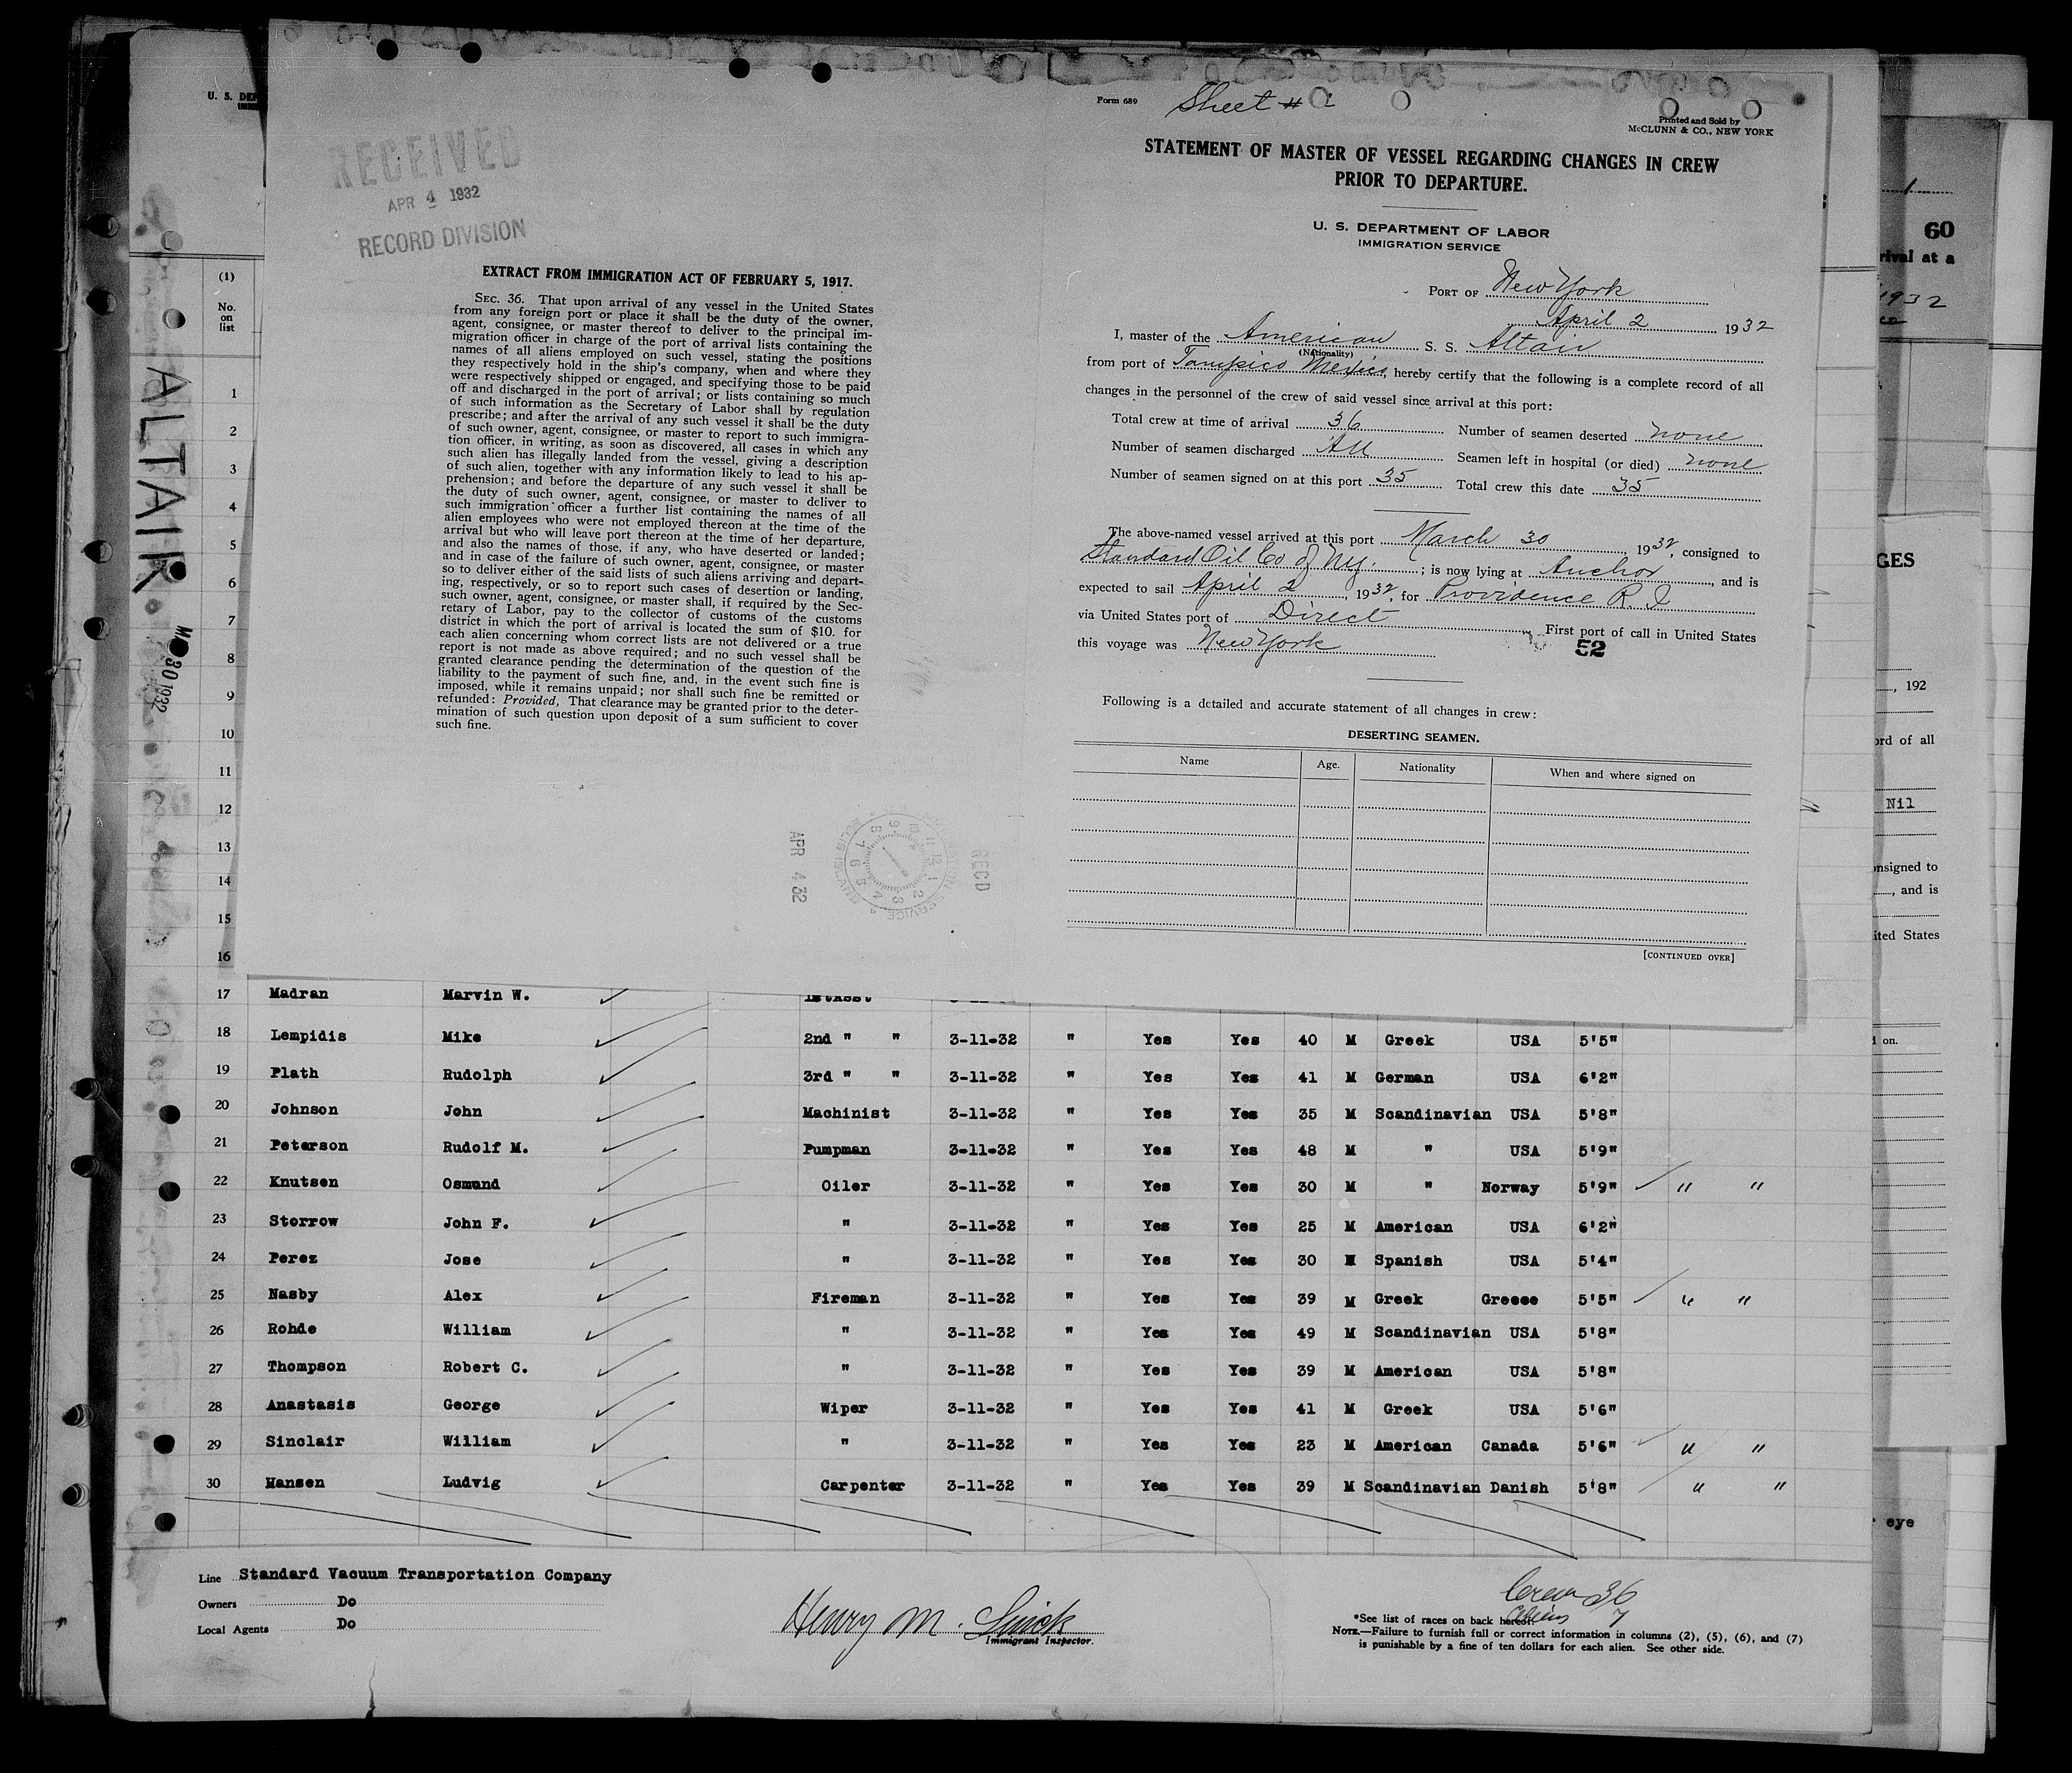 U. S. DEP
RECEIVED
APR 4 1932
RECORD DIVISION
EXTRACT FROM IMMIGRATION ACT OF FEBRUARY 5, 1917.
SEC. 36. That upon arrival of any vessel in the United States
from any foreign port or place it shall be the duty of the owner,
agent, consignee, or master thereof to deliver to the principal im-
migration officer in charge of the port of arrival lists containing the
names of all aliens employed on such vessel, stating the positions
they respectively hold in the ship's company, when and where they
were respectively shipped or engaged, and specifying those to be paid
off and discharged in the port of arrival; or lists containing so much
of such information as the Secretary of Labor shall by regulation
prescribe; and after the arrival of any such vessel it shall be the duty
of such owner, agent, consignee, or master to report to such immigra-
tion officer, in writing, as soon as discovered, all cases in which any
such alien has illegally landed from the vessel, giving a description
of such alien, together with any information likely to lead to his ap-
prehension; and before the departure of any such vessel it shall be
the duty of such owner, agent, consignee, or master to deliver to
such immigration officer a further list containing the names of all
alien employees who were not employed thereon at the time of the
arrival but who will leave port thereon at the time of her departure,
and also the names of those, if any, who have deserted or landed;
and in case of the failure of such owner, agent, consignee, or master
so to deliver either of the said lists of such aliens arriving and depart-
ing, respectively, or so to report such cases of desertion or landing,
such owner, agent, consignee, or master shall, if required by the Sec-
retary of Labor, pay to the collector of customs of the customs
district in which the port of arrival is located the sum of $10. for
each alien concerning whom correct lists are not delivered or a true
report is not made as above required; and no such vessel shall be
granted clearance pending the determination of the question of the
liability to the payment of such fine, and, in the event such fine is
imposed, while it remains unpaid; nor shall such fine be remitted or
refunded: Provided, That clearance may be granted prior to the deter-
mination of such question upon deposit of a sum sufficient to cover
such fine.
APR 4 32
REC'D
Form 689
Sheet # 1
Printed and Sold by
McCLUNN & CO., NEW YORK
STATEMENT OF MASTER OF VESSEL REGARDING CHANGES IN CREW
PRIOR TO DEPARTURE.
U. S. DEPARTMENT OF LABOR
IMMIGRATION SERVICE
PORT OF New York
April 2 1932
I, master of the American S. S. Altair
(Nationality)
from port of Tampico Mexico, hereby certify that the following is a complete record of all
changes in the personnel of the crew of said vessel since arrival at this port:
Total crew at time of arrival 36 Number of seamen deserted none
Number of seamen discharged All Seamen left in hospital (or died) none
Number of seamen signed on at this port 35 Total crew this date 35
The above-named vessel arrived at this port March 30 1932, consigned to
Standard Oil Co of N.Y. ; is now lying at Anchor, and is
expected to sail April 2, 1932, for Providence R. I
via United States port of Direct First port of call in United States
this voyage was New York 52
Following is a detailed and accurate statement of all changes in crew:
DESERTING SEAMEN.
Name Age. Nationality When and where signed on
[CONTINUED OVER]
(1)
No.
on
list
1
2
3
4
5
6
7
8
9
10
11
12
13
14
15
16
ALTAIR
MAR 30 1932
17 Madran Marvin W.
18 Lempidis Mike 2nd " " 3-11-32 " Yes Yes 40 M Greek USA 5'5"
19 Plath Rudolph 3rd " " 3-11-32 " Yes Yes 41 M German USA 6'2"
20 Johnson John Machinist 3-11-32 " Yes Yes 35 M Scandinavian USA 5'8"
21 Peterson Rudolf M. Pumpman 3-11-32 " Yes Yes 48 M " USA 5'9"
22 Knutsen Osmund Oiler 3-11-32 " Yes Yes 30 M " Norway 5'9" " "
23 Storrow John F. " 3-11-32 " Yes Yes 25 M American USA 6'2"
24 Perez Jose " 3-11-32 " Yes Yes 30 M Spanish USA 5'4"
25 Nasby Alex Fireman 3-11-32 " Yes Yes 39 M Greek Greece 5'5" " "
26 Rohde William " 3-11-32 " Yes Yes 49 M Scandinavian USA 5'8"
27 Thompson Robert C. " 3-11-32 " Yes Yes 39 M American USA 5'8"
28 Anastasis George Wiper 3-11-32 " Yes Yes 41 M Greek USA 5'6"
29 Sinclair William " 3-11-32 " Yes Yes 23 M American Canada 5'6" " "
30 Hansen Ludvig Carpenter 3-11-32 " Yes Yes 39 M Scandinavian Danish 5'8" " "
Line Standard Vacuum Transportation Company
Owners Do
Local Agents Do
Henry M.
Immigrant Inspector.
Crew 36
Aliens 7
*See list of races on back hereof.
NOTE.—Failure to furnish full or correct information in columns (2), (5), (6), and (7)
is punishable by a fine of ten dollars for each alien. See other side.
1
60
rival at a
1932
GES
, 192
ord of all
Nil
onsigned to
, and is
ited States
on.
eye